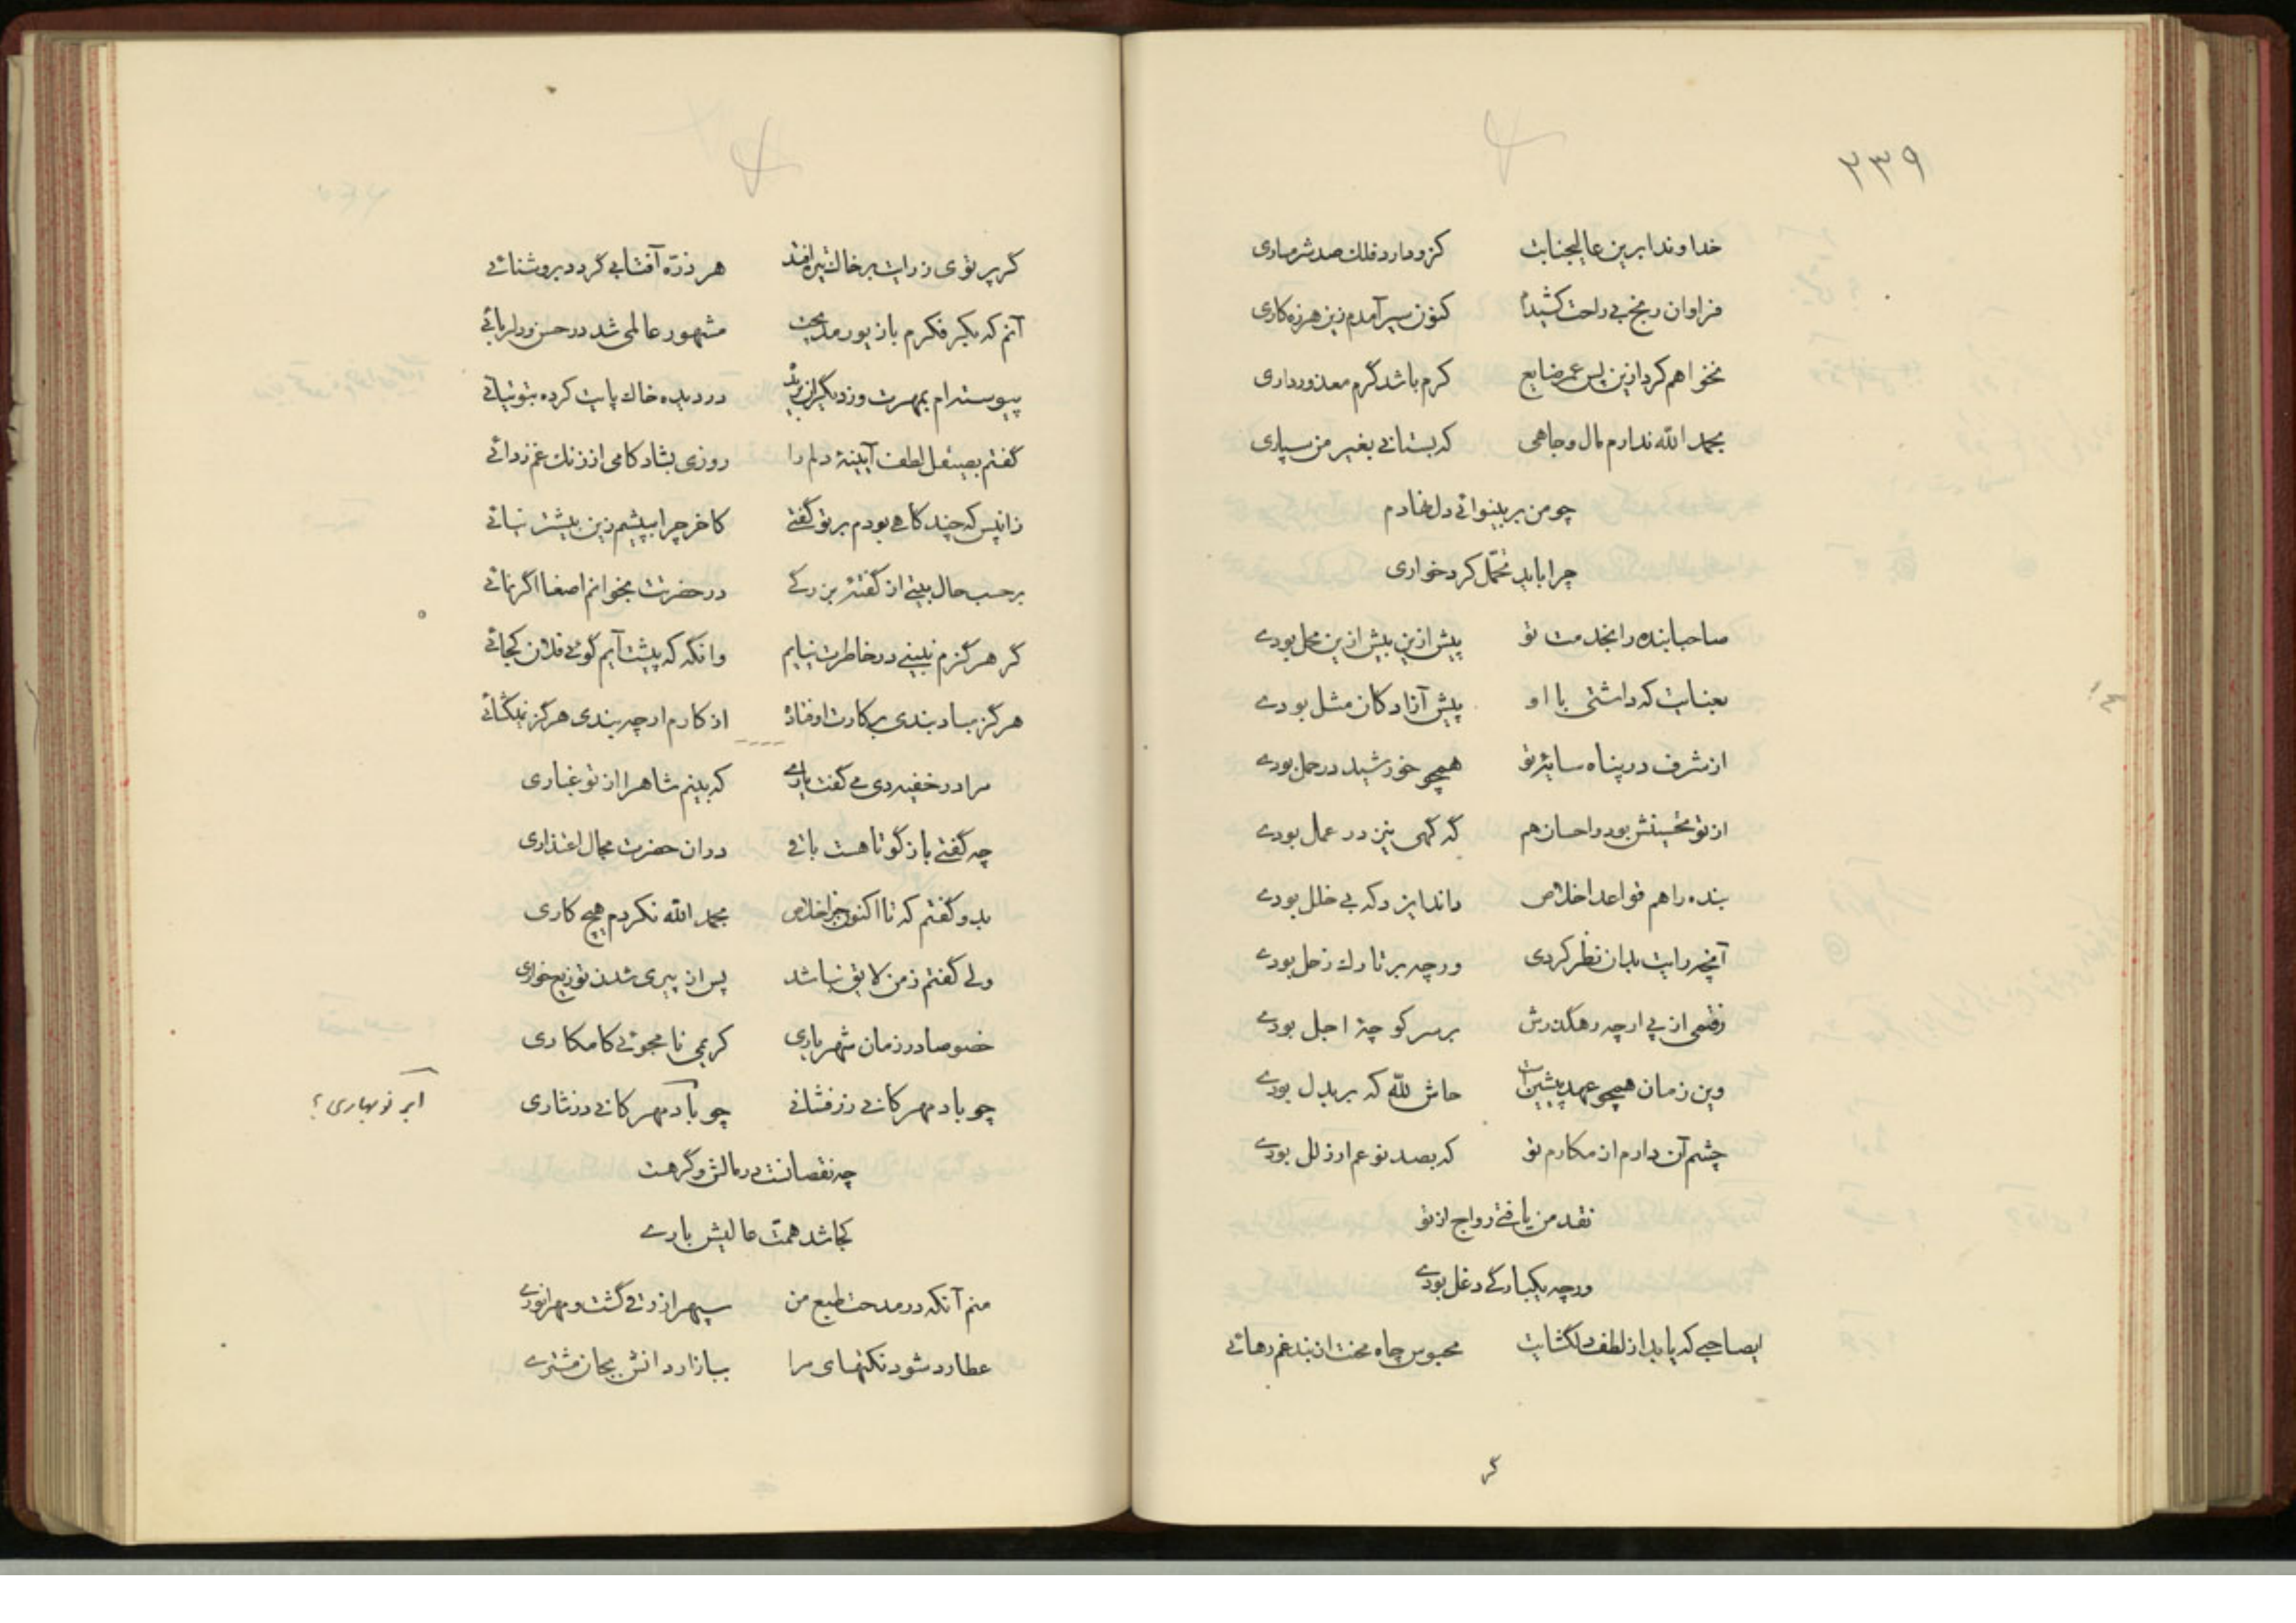 ۲۳۹
خداوندا برین عالیجنابت کزو دارد فلک صد شرمساری
فراوان رنج بی راحت کشیدم کنون سیر آمدم زین هرزه کاری
نخواهم کرد ازین پس عمر ضایع کرم باشد گرم معذور داری
بحمد الله ندارم مال و جاهی که بستانی بغیر من سپاری
چو من بر بینوائی دل نهادم
چرا باید تحمّل کرد خواری
صاحبا بنده را بخدمت تو پیش ازین بیش ازین محل بودے
بعنایت که داشتی با او پیش آزادکان مثل بودے
از شرف در پناه سایۀ تو همچو خورشید در حمل بودے
از تو تحسینش بود و احسان هم گه گهی نیز در عمل بودے
بنده را هم قواعد اخلاص داند ایزد که بے خلل بودے
آنچه رایت بدان نظر کردی ورچه بر تارك زحل بودے
رفتمی از پے ارچه رهگذرش بر سر کوچۀ اجل بودے
وین زمان همچو عهد پیشین است حاش للّه که بر بدل بودے
چشم آن دارم از مکارم تو که بصد نوعم ار زلل بودے
نقد من یافتے رواج از تو
ورچه یکبارگے دغل بودے
ایصاحبے که یابد از لطف دلگشایت محبوس چاه محنت از بند غم رهائے
گر
گر پرتوی ز رایت بر خاك تیره افتد هر ذرّه آفتابے گردد بروشنائے
آنم که بکر فکرم با زیور مدیحت مشهور عالمی شد در حسن و دلربائے
پیوسته‌ام بمهرت وز دیگران بریده در دیده خاك پایت کرده بتوتیائے
گفتم بصیقل لطف آیینۀ دلم را روزی بشادکامی از زنك غم زدائے
زانپس که چند گاهے بودم بر تو گفتے کاخر چرا بپیشم زین بیشتر نیائے
بر حسب حال بیتے از گفتۀ بزرگے در حضرتت بخوانم اصغا اگر نمائے
گر هرگزم نبینے در خاطرت نیایم وانگه که پیشت آیم گوئے فلان کجائے
هرگز مباد بندی بر کارت اوفتاده از کارم ار چه بندی هرگز نمیگشائے
مرا در خفیه دی مے گفت یارے که بینم شاه را از تو غباری
چه گفتے باز گو تا هست باقے در ان حضرت مجال اعتذاری
بدو گفتم که تا اکنون جز اخلاص بحمد الله نکردم هیچ کاری
ولے گفتم ز من لایق نباشد پس از پیری شدن توزیع خواری
خصوصا در زمان شهریاری کریمی نامجوئے کامکاری
چو باد مهرکانے زرفشانے چو باد مهرکانے در نثاری
ابر نوبهاری ؟
چه نقصانست در مالش وگر هست
کجا شد همّت عالیش بارے
منم آنکه در مدحت طبع من سپهر ازرقے گشت و مهر انورے
عطارد شود نکتهای مرا ببازار دانش بجان مشترے